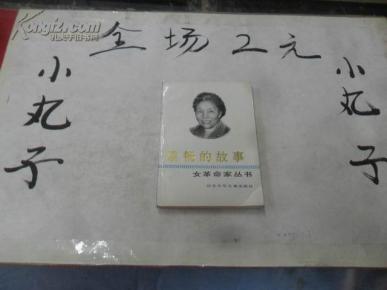 Kongfz.com
孔夫子旧书网
全场2元
小丸子
小丸子
的故事
女革命家丛书